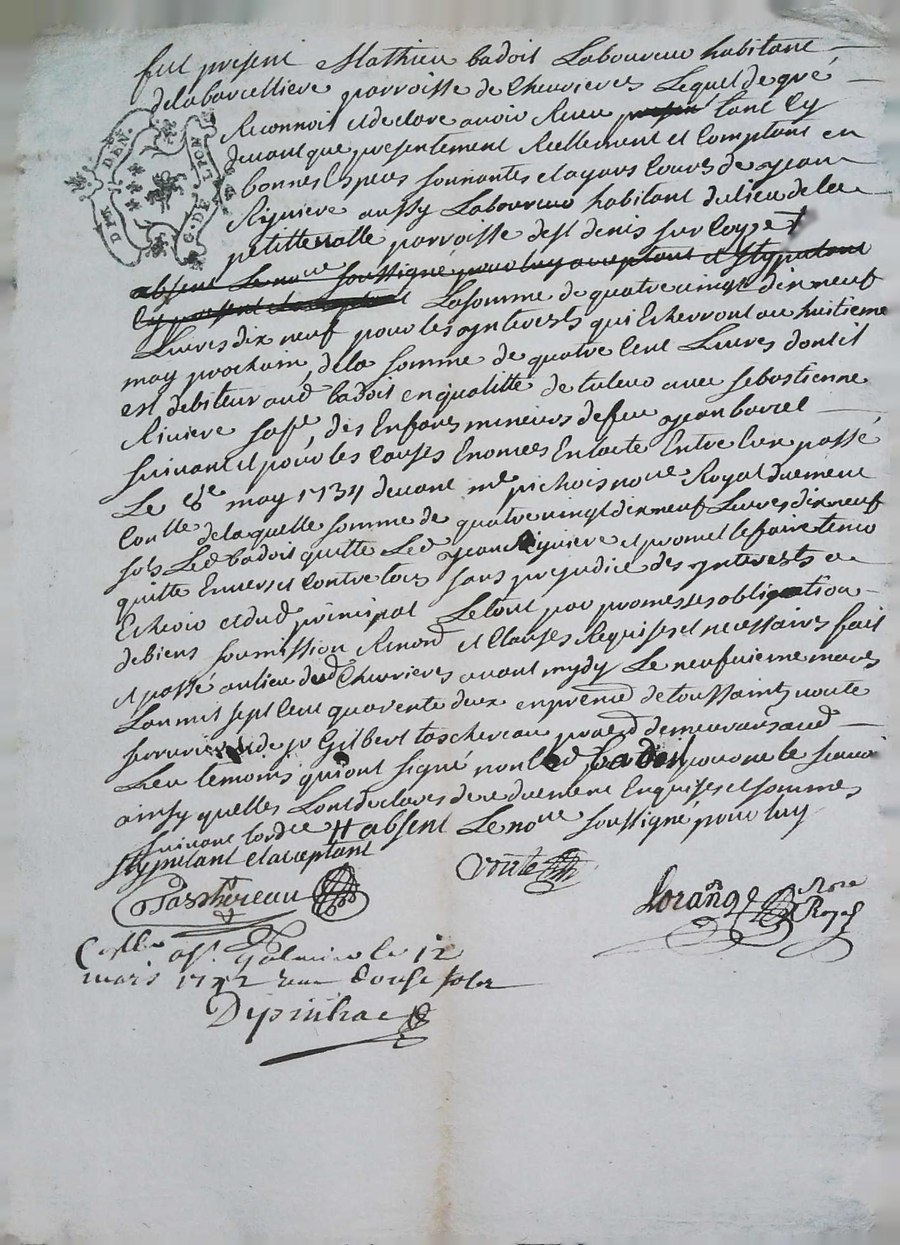 fut present Mathieu badoit Laboureur habitant
delabarcelliere parroisse de Chevrieres Lequel de gré
Reconnoit et declare avoir Receu tant Cy
devant que presentement Reellement et Comptant en
bonnes Especes sonnantes et ayant Cours de jean
Riviere aussy Laboureur habitant du lieu dela
petitte parroisse de st denis sur Coyze #
absent Le nore soussigné pour luy acceptant et stypulant
Cy present et acceptant Lasomme de quatre vingt dix neuf
Livres dix neuf pour les ynterests qui Echerront au huitieme
may prochain, dela somme de quatre Cent Livres dont il
est debiteur aud badoit en qualitte de tuteur avec sebastienne
Riviere sa fe, des Enfans mineurs de feu jean
suivant et pour les Causes Enoncées En lacte Entre Eux passé
Le 8e may 1734 devant me pichois nore Royal duement
Conllé delaquelle somme de quatre vingt dix neuf Livres dix neuf
sols Led badoit quitte Led jean Riviere et promet le faire tenir
quitte Envers et Contre tous sans prejudice des ynterests a
Echeoir et dud principal Le tout par promesses obligation
de biens soumission Renond et Clauses Requises et necessaires fait
et passé au lieu dud Chevrieres avant mydy Le neufvieme mars
Lan mil sept Cent quarente deux en presence de toussaint voute
serrurier & de sr Gilbert taschereau demeurans aud
Lieu temoins qui ont signé non Led badoit pour ne le scavoir
ainsy quelles Lont declaré de ce duement Enquises et sommés
suivant lordce # absent Le nore soussigné pour luy
stypulant et acceptant
Voute
Taschereau
Lorang Nore
Royal
Conllé a st Galmier le 12
mars 1742 receu douse sols